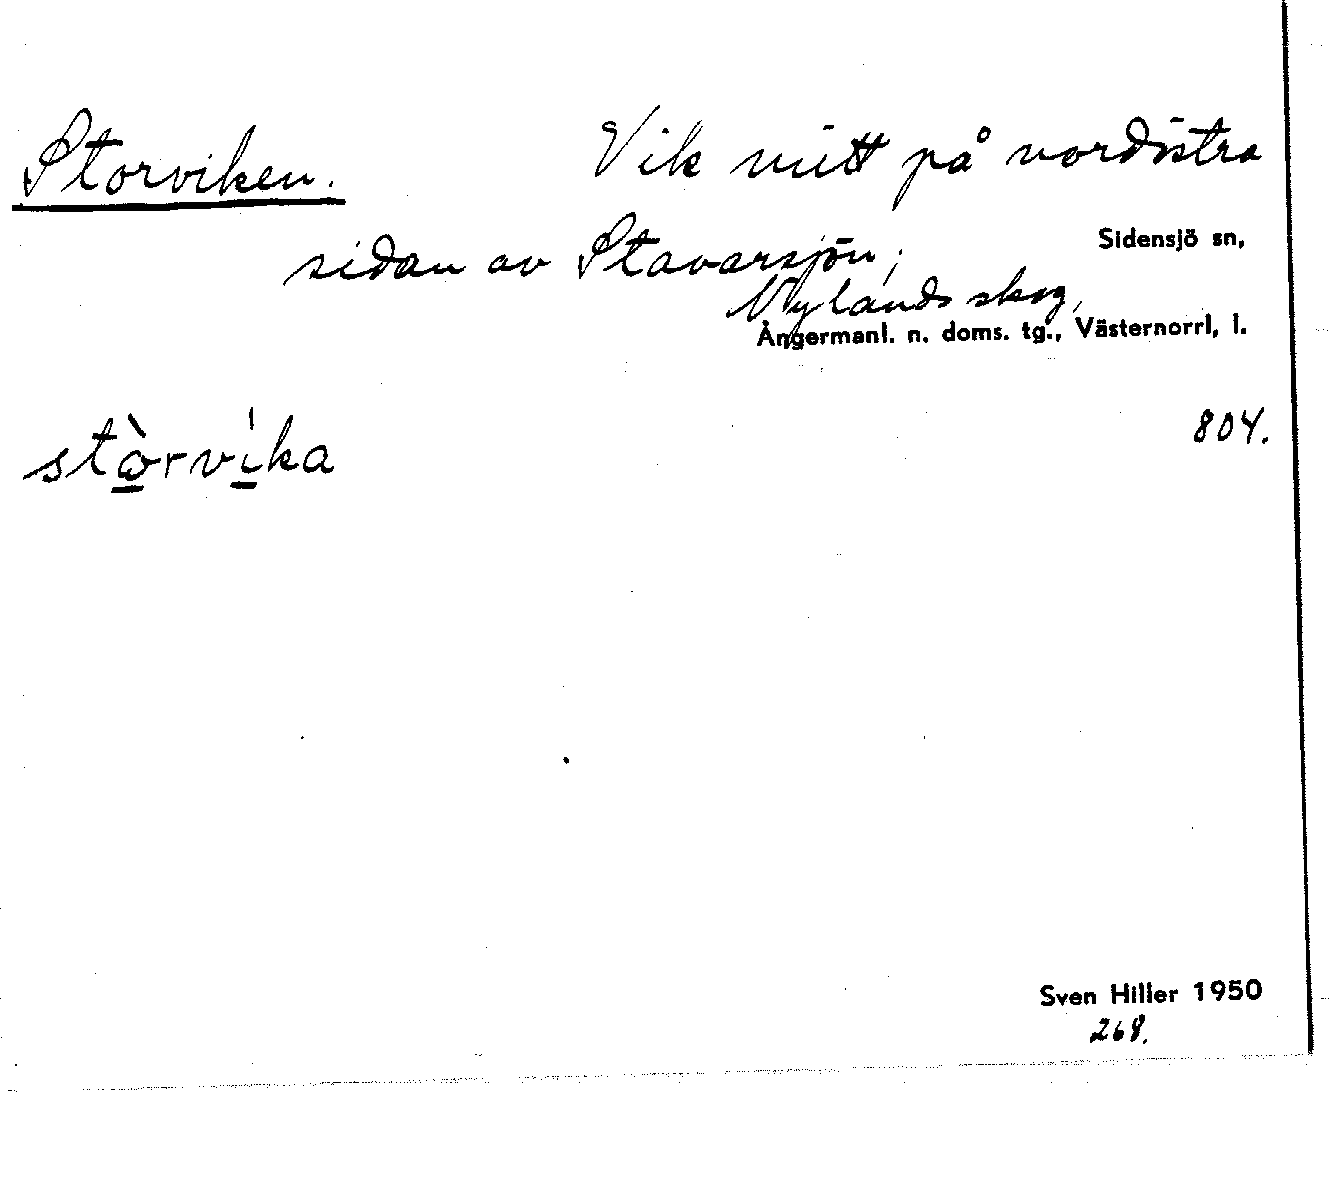 Storviken. Vik mitt på nordöstra
Sidensjö sn,
sidan av Stavarsjön;
Nylands skog,
Ångermanl. n. doms. tg., Västernorrl, l.
804.
stòrvíka
Sven Hiller 1950
268.